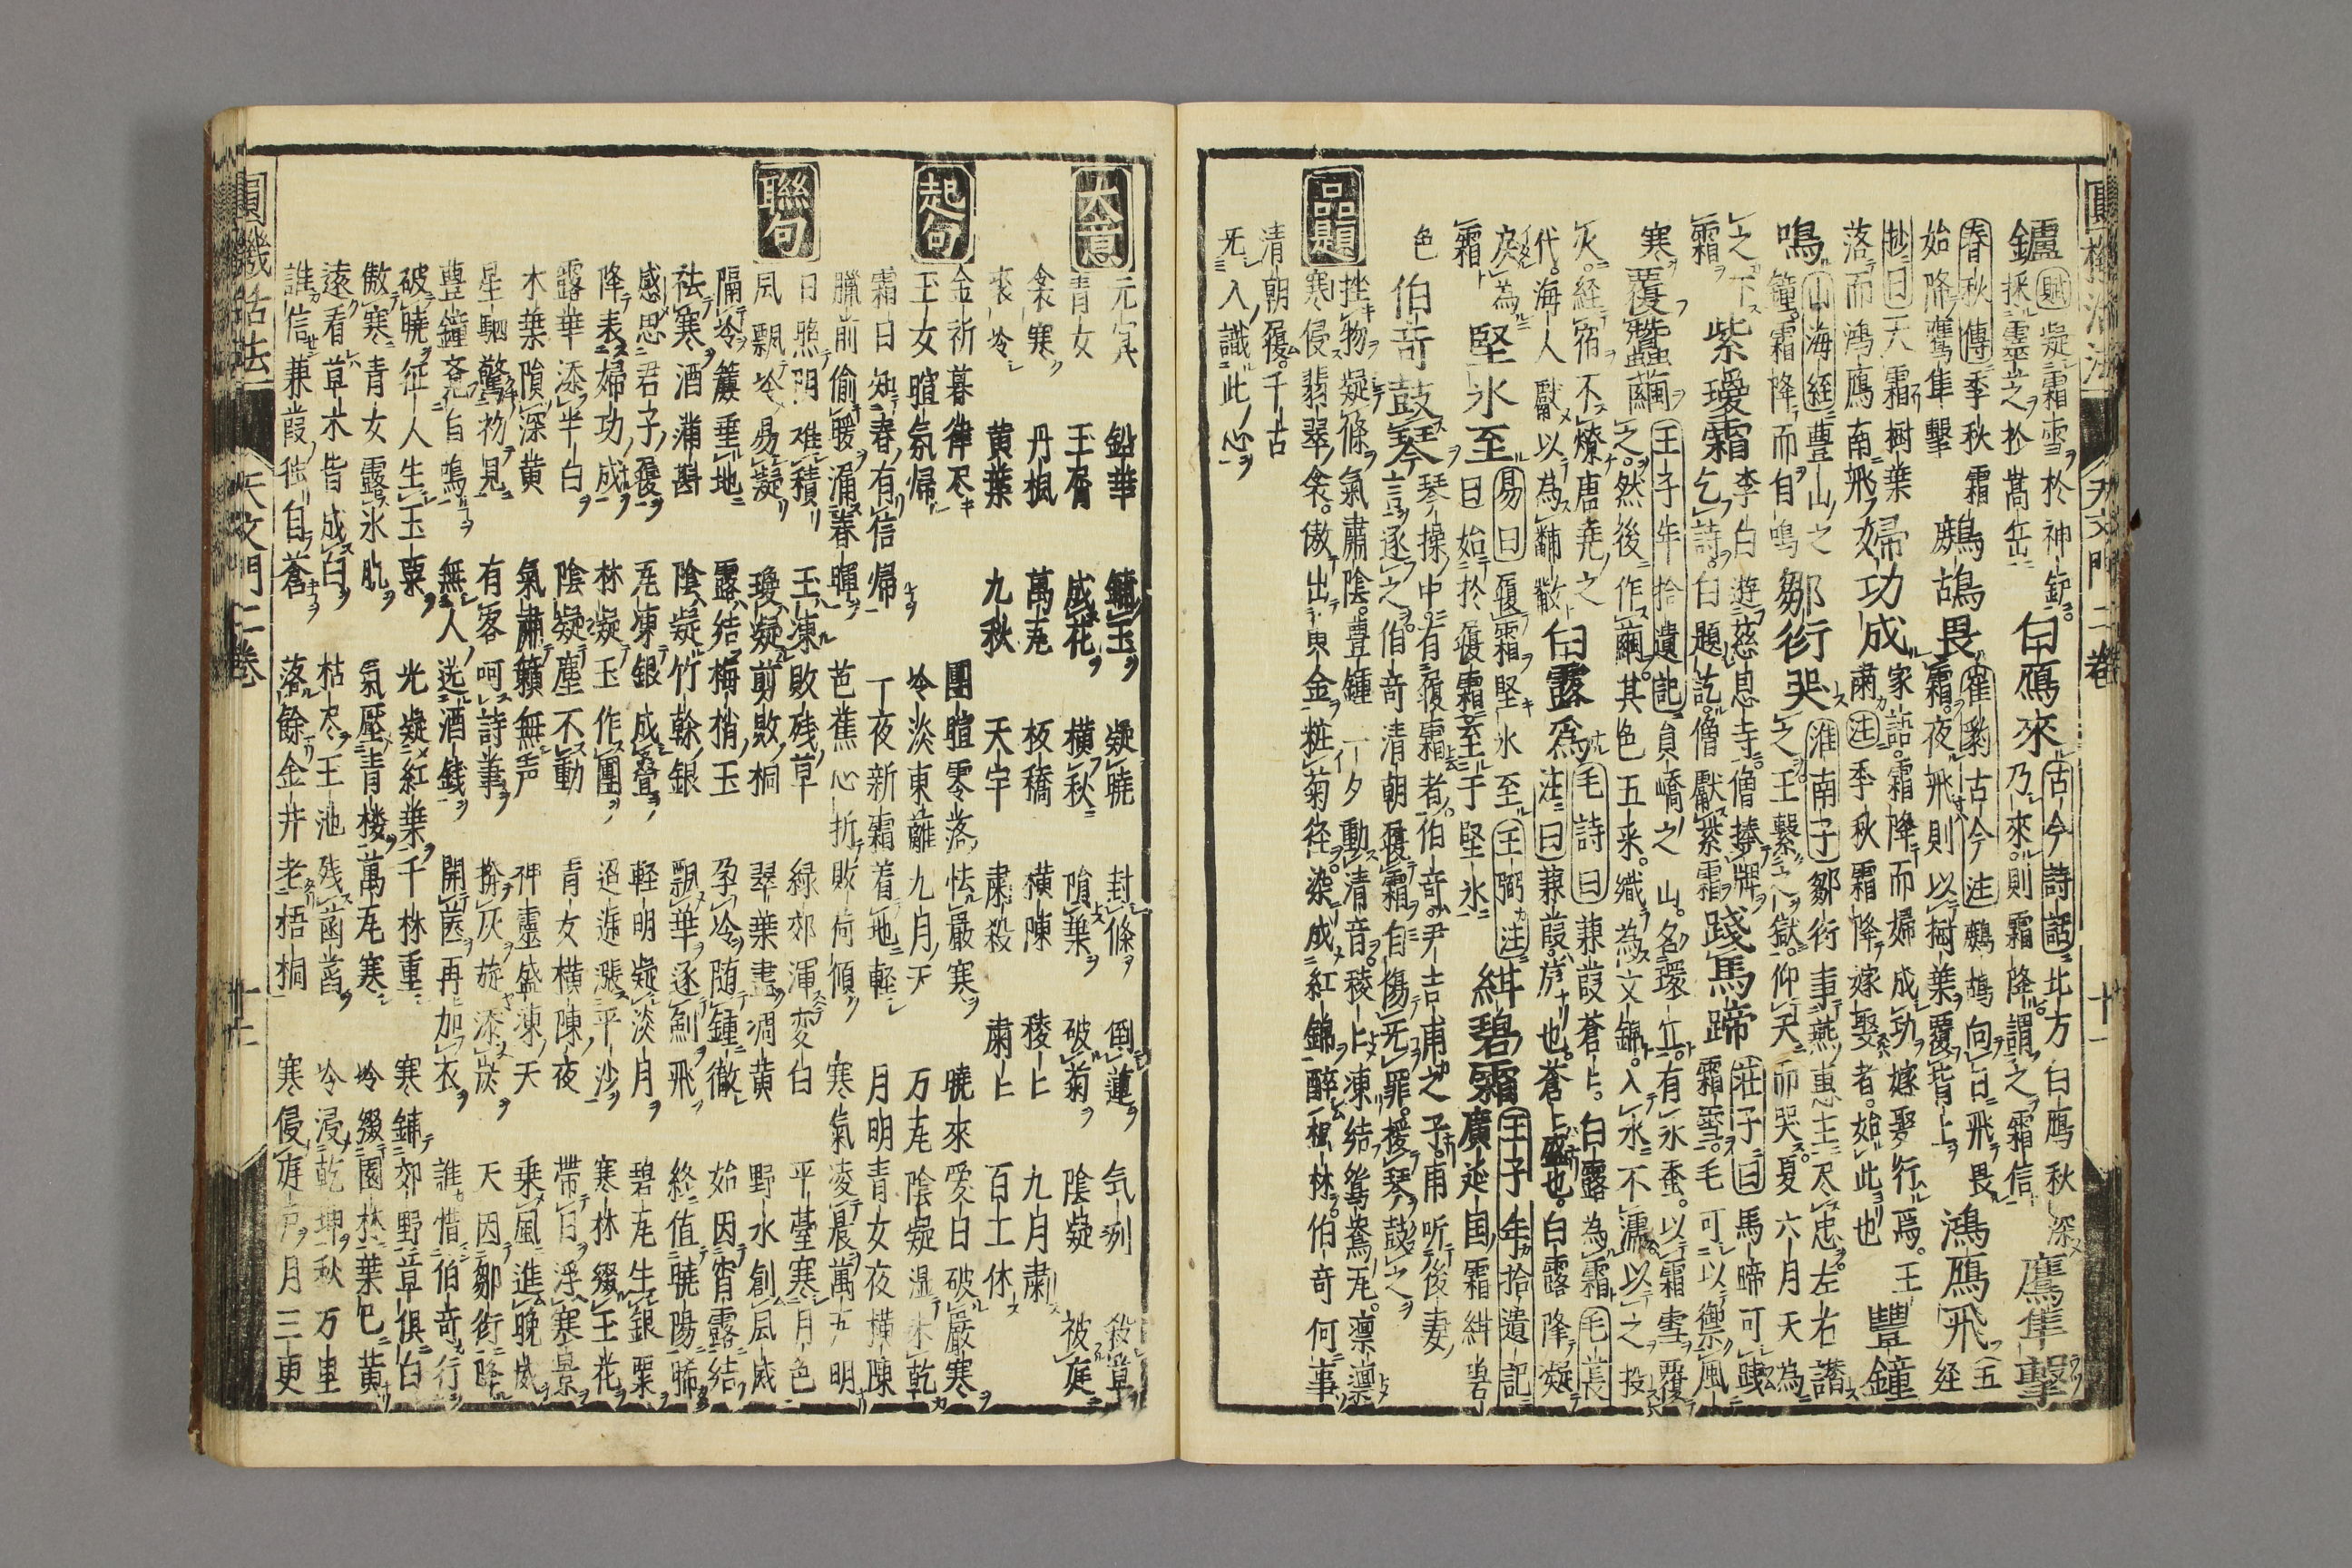 鑪賦凝霜雪於神鈩
採靈芝於嵩岳
白鴈來古今詩話北方白鴈秋深
乃來則霜降謂之霜信
鷹隼擊
春秋傳季秋霜
始降鷹隼擊
鷓鴣畏霜崔豹古今注鷓鴣向日飛畏
霜夜飛則以樹葉覆背上
鴻鴈飛五
経
抄曰天霜樹葉
落而鴻鴈南飛
婦功成家語霜降而婦成功嫁娶行焉王
肅注季秋霜降嫁娶者始此也
豐鐘
鳴山海経豊山之
鐘霜降而自鳴
鄒衍哭淮南子鄒衍事燕惠王尽忠左右譖
之王繋之獄仰天而哭夏六月天為
之下霜
紫璦霜李白遊慈恩寺僧捧牌
乞詩白題訖僧獻紫霜
踐馬蹄荘子曰馬蹄可踐
霜雪毛可以禦風
寒
覆蠶繭王子年拾遺記員嶠之山名環丘有氷蚕以霜雪覆
之然後作繭其色五采織為文錦入水不濡以之投
灰経宿不燎唐堯之
代海人獻以為黼黻
白露為毛詩曰蒹葭蒼上白露為霜毛萇
注曰蒹葭蒼上盛也白露降凝
戻為
霜
堅氷至易曰履霜堅氷至王弼注
曰始於履霜至于堅氷
絓碧霜王子年拾遺記
廣延国霜絓碧
色
伯奇鼓琴琴操中有履霜者伯奇尹吉甫之子甫听後妻
言逐之伯奇清朝履霜自傷无罪援琴鼓之
品題
挫物凝條氣肅陰豊鐘一夕動清音稜上凍結鴛鴦瓦凛凛
寒侵翡翠衾傲出東金粧菊径染成紅錦醉楓林伯奇何事
清朝履千古
无人識此心
大意
元冥 鉛華 鏽玉 凝曉 封條 倒蓮 気冽 殺草
青女 玉屑 成花 橫秋 隕葉 破菊 陰凝 被庭
衾寒 丹楓 萬瓦 板橋 橫陳 稜上 九月肅
衷冷 黄葉 九秋 天宇 肅殺 肅上 百工休
起句
金祈暮律尽 團暄零落怯嚴寒 曉來愛日破嚴寒
玉女暄氛帰 冷淡東籬九月天 万瓦陰凝湿未乾
霜日知春有信帰 丁夜新霜着地軽 月明青女夜橫陳
臘前偷暖漏春暉 芭蕉心折敗荷傾 寒氣凌晨萬瓦明
聯句
日照門難積 玉凍敗残草 緑郊渾変白 平臺寒月色
風飄冷易凝 瓊凝剪敗桐 翠葉盡凋黄 野水創風威
隔冷簾垂地 露結梅梢玉 孕冷随鐘徹 始因宵露結
祛寒酒滿斟 陰凝竹幹銀 飄華逐劍飛 終值曉陽晞
感思君子履 瓦凍銀成疊 軽明凝淡月 碧瓦生銀粟
降表婦功成 林凝玉作團 迢遞漲平沙 寒林綴玉花
露華添半白 陰凝塵不動 青女横陳夜 帯日浮寒景
木葉隕深黄 氣肅籟無声 神靈盛凍天 乗風進晚威
星駟驚初見 有客呵詩筆 擁灰旋添炭 天因鄒衍降
豊鐘竟自鳴 無人送酒錢 開匧再加衣 誰惜伯奇行
破曉征人生玉粟 光凝紅葉千株重 寒鋪郊野草俱白
傲寒青女露氷肌 氣壓青楼萬瓦寒 冷綴園林葉已黄
遠看草木皆成白 枯尽王池残菡萏 冷浸乾坤秋万里
誰信蒹葭独自蒼 落餘金井老梧桐 寒侵庭戸月三更
圓機活法 天文門二卷 十一
圓機活法 天文門二卷 十二